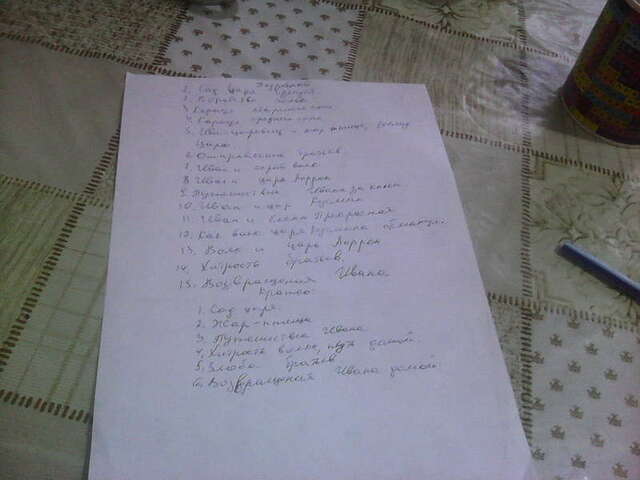 1. Сад царя
2. Воровство
3. Караул
4. Караул среднего сына
5. Иван-царевич - жар птица,
царю
6. братьев
7. Иван и серый волк
8. Иван и царь Афрон
9. Путешествие Ивана за конём
10. Иван и царь Кусман
11. Иван и Елена Прекрасная
12. Как волк царя Кусмана обманул.
13. Волк и царь Афрон
14. Хитрость братьев.
15. Возвращения Ивана
Кратко:
1. Сад царя.
2. Жар-птица
3. Путешествие Ивана
4. Хитрость волка, путь домой.
5. Злоба братьев
6. Возвращения Ивана домой.